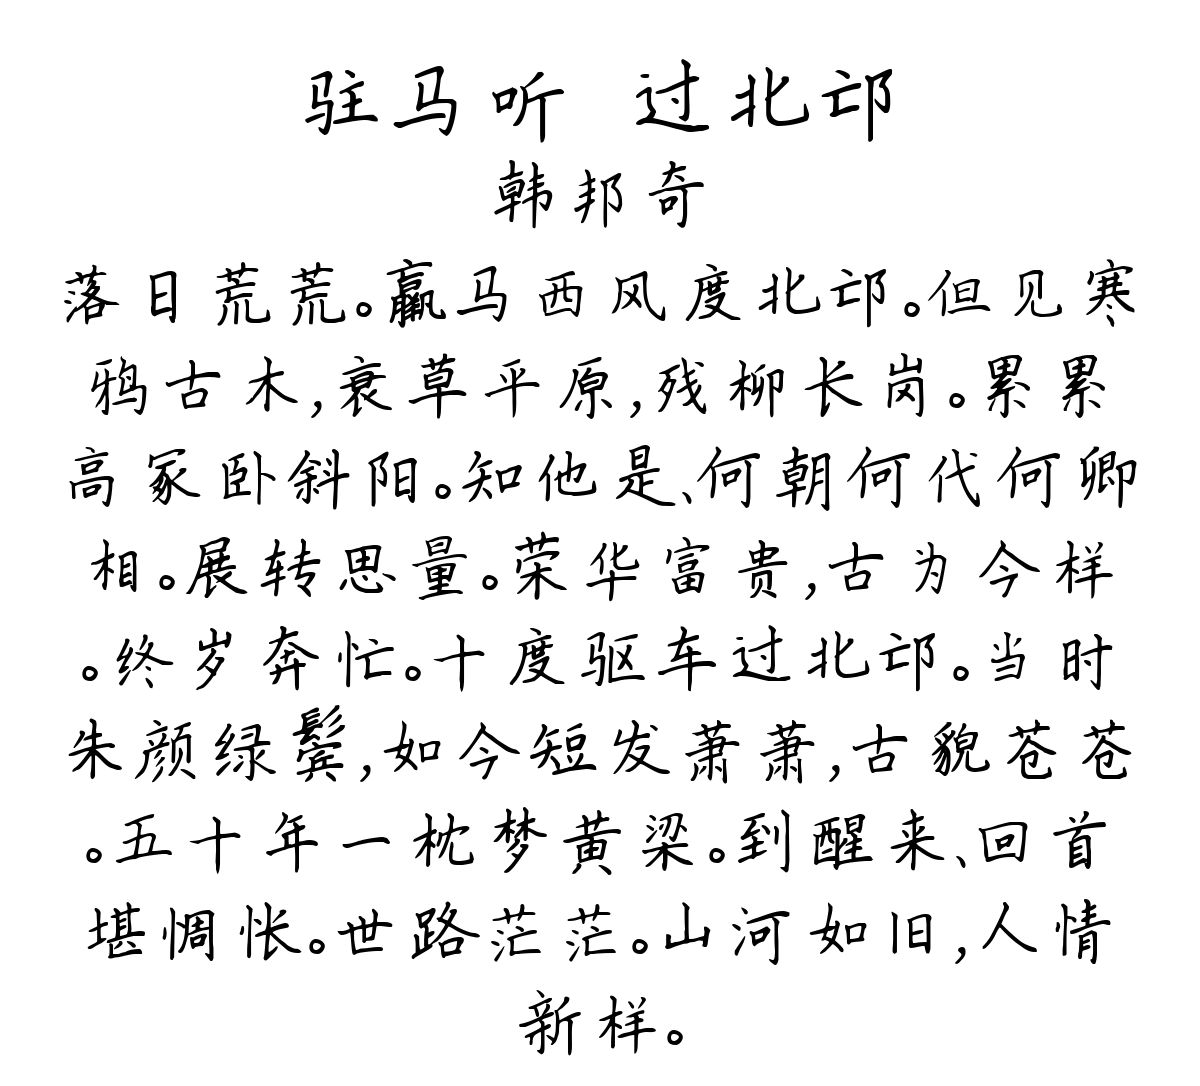 驻马听 过北邙
韩邦奇
落日荒荒。羸马西风度北邙。但见寒
鸦古木,衰草平原,残柳长岗。累累
高冢卧斜阳。知他是、何朝何代何卿
相。展转思量。荣华富贵,古为今样
。终岁奔忙。十度驱车过北邙。当时
朱颜绿鬓,如今短发萧萧,古貌苍苍
。五十年一枕梦黄粱。到醒来、回首
堪惆怅。世路茫茫。山河如旧,人情
新样。